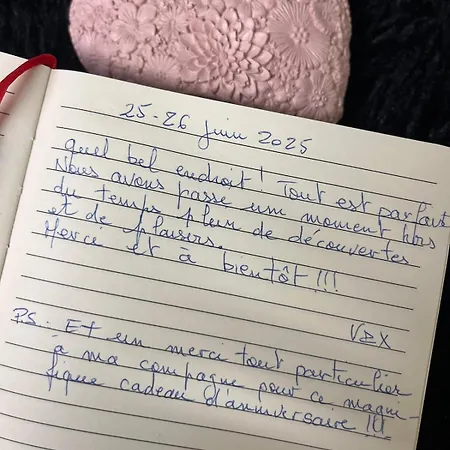 25-26 juin 2025
Quel bel endroit! Tout est parfait
Nous avons passé un moment hors
du temps plein de découvertes
et de plaisirs.
Merci et à bientôt!!!
P.S. Et un merci tout particulier
à ma compagne pour ce magni-
fique cadeau d'anniversaire !!!